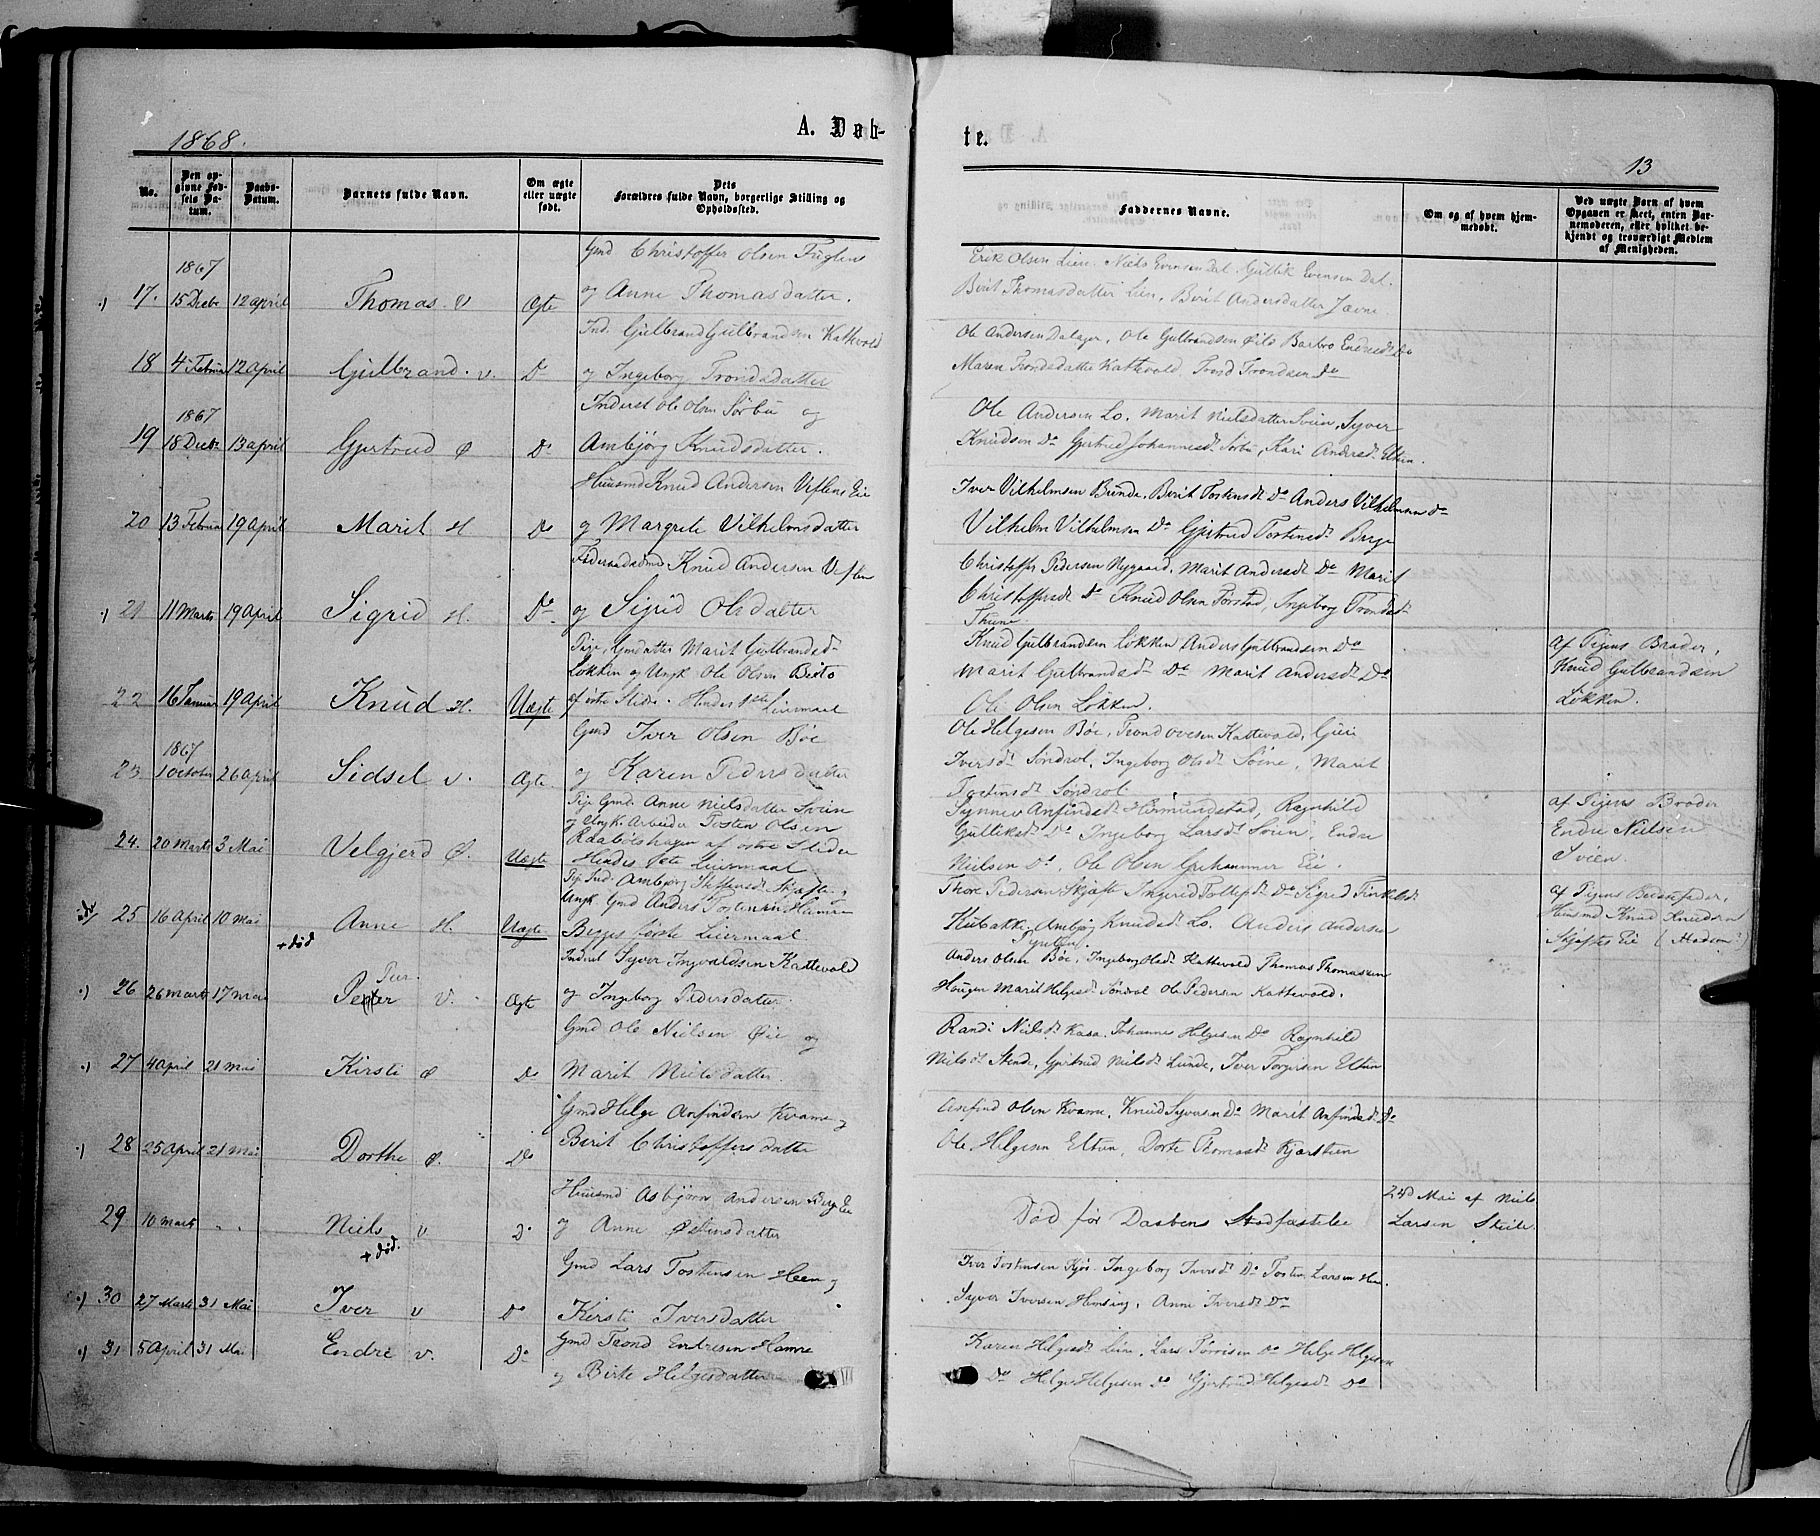 1868.
A. Døb-
te.
13
No.
Den op-
givne Fød-
sels Da-
tum.
Daabs-
Datum.
Barnets fulde Navn.
Om ægte
eller uægte
født.
Dets
Forældres fulde Navn, borgerlige Stilling og
Opholdssted.
Faddernes Navne.
Om og af hvem hjem-
medøbt.
Ved uægte Børn af hvem
Opgaven er skeet, enten Bar-
nemoderen, eller hvilket be-
kjendt og troværdigt Medlem
af Menigheden.
1867
17. 15 Dcbr 12 april Thomas. V Ægte
Gmd Christoffer Olsen Fuglens
og Anne Thomasdatter.
Erik Olsen Lien. Niels Evensen Dal. Gullik Evensen Dal.
Berit Thomasdatter Lien, Berit Andersdatter Jævne
18 4 Februar 12 April Gulbrand. v. Do
Ind. Gulbrand Gulbrandsen Kattevold
og Ingeborg Trondsdatter
Ole Andersen Dalager, Ole Gulbrandsen Barbro Endresdt Do
Maren Trondsdatter Kattevold, Trond Trondsen Do
1867
19 18 Decbr 13 april Gjertrud Ø Do
Inderst Ole Olsen Sørbu og
Ambjørg Knudsdatter.
Ole Andersen Lo. Marit Nielsdatter Svien, Syver
Knudsen Do Gjertrud Johannesdt Sørbu, Kari Andersdt Eltun.
20 13 Februar 19 April Marit H Do
Huusmd Knud Andersen Veflens Eie
og Margrete Vilhelmsdatter
Iver Vilhelmsen Bunde, Berit Tostensdt Do Anders Vilhelmsen Do
Vilhelm Vilhelmsen Do Gjertrud Tostensdt Berge
21 11 Marts 19 April Sigrid H. Do
Føderaadsmd Knud Andersen Veflen
og Sigrid Olsdatter
Christoffer Pedersen Nygaard, Marit Andersdt Do Marit
Christoffersdt Do Knud Olsen Førstad, Ingeborg Trondsdt
Thune
22 16 Januar 19 April Knud H. Uægte
Pige, Gmdatter Marit Gulbrandsdt
Løkken og Ungk Ole Olsen Beito
af østre Slidre. Hendes 1ste Leiermaal
Knud Gulbrandsen Løkken Anders Gulbrandsen Do
Marit Gulbrandsdt Do Marit Andersdt Do
Ole Olsen Løkken.
af Pigens Broder,
Knud Gulbrandsen
Løkken.
1867
23. 1 October 26 april Sidsel v. Ægte.
Gmd Iver Olsen Bøe
og Karen Pedersdatter
Ole Helgesen Bøe, Trond Ovesen Kattevold, Guri
Iversdt Søndrol, Ingeborg Olsdt Søine, Marit
Tostensdt Søndrol.
24. 20 Marts 3 Mai Velgjerd Ø. Uægte
Pige Gmd. Anne Nielsdatter Svien
og Ungk. Arbeider Tosten Olsen
Raabølshagen af østre Slidre
Hendes 1ste Leiermaal
Synnev Anfindsdt Hermundstad, Ragnhild
Gulliksdt Do Ingeborg Larsdt Svien, Endre
Nielsen Do, Ole Olsen Eie.
af Pigens Broder
Endre Nielsen
Svien.
25 16 April 10 Mai Anne H. Uægte
+ død
Pige Ind. Ambjørg Steffensdt Skjefte og
Ungk Gmd Anders Tostensen Hamre
Begges første Leiermaal
Thore Pedersen Skjefte Ingerid Tollefsdt Do Sigrid
Kubakke. Ambjørg Knudsdt Lo. Anders Andersen
af Pigens Bedstefader,
Huusmd Knud Knudsen
Skjeftes Eie
26 26 marts 17 mai Peder V. Ægte
Peer.
Inderst Syver Ingvaldsen Kattevold
og Ingeborg Pedersdatter.
Anders Olsen Bøe, Ingeborg Olsdt Kattevold Thomas Thomassen
Hougen Marit Helgesdt Søndrol Ole Pedersen Kattevold.
27 4 april 21 Mai Kirsti Ø Do
Gmd Ole Nielsen Øie og
Marit Nielsdatter.
Randi Nielsdt Kasa, Johannes Helgesen Do Ragnhild
Nielsdt Stende, Gjertrud Nielsdt Lunde, Iver Torgersen Eltun
28 25 April 21 Mai Dorthe Ø. Do
Gmd Helge Anfindsen Kvame og
Berit Christoffersdatter
Anfind Olsen Kvame, Knud Syversen Do Marit Anfindsdt Do
Ole Helgesen Eltun, Dorte Thomasdt Kjerstein
29 10 marts " " Niels v Do
+ død.
Huusmd Asbjørn Andersen Berge Eie
og Anne Østensdatter
Død før Daabens Stadfæstelse
22d Mai af Niels
Larsen Steile
30 27 Marts 31 Mai Iver v Do
Gmd Lars Tostensen Heen og
Kirsti Iversdatter
Iver Tostensen Kjøs. Ingeborg Iversdt Do Tosten Larsen Heen
Syver Iversen Hemsing, Anne Iversdt Do
31 5 April 31 Mai Endre v. Do
Gmd Trond Endresen Hamre
og Birte Helgesdatter
Karen Helgesdt Line, Lars Torrisen Do Helge Helgesen
Do Helge Helgesen Do Gjertrud Helgesdt Do